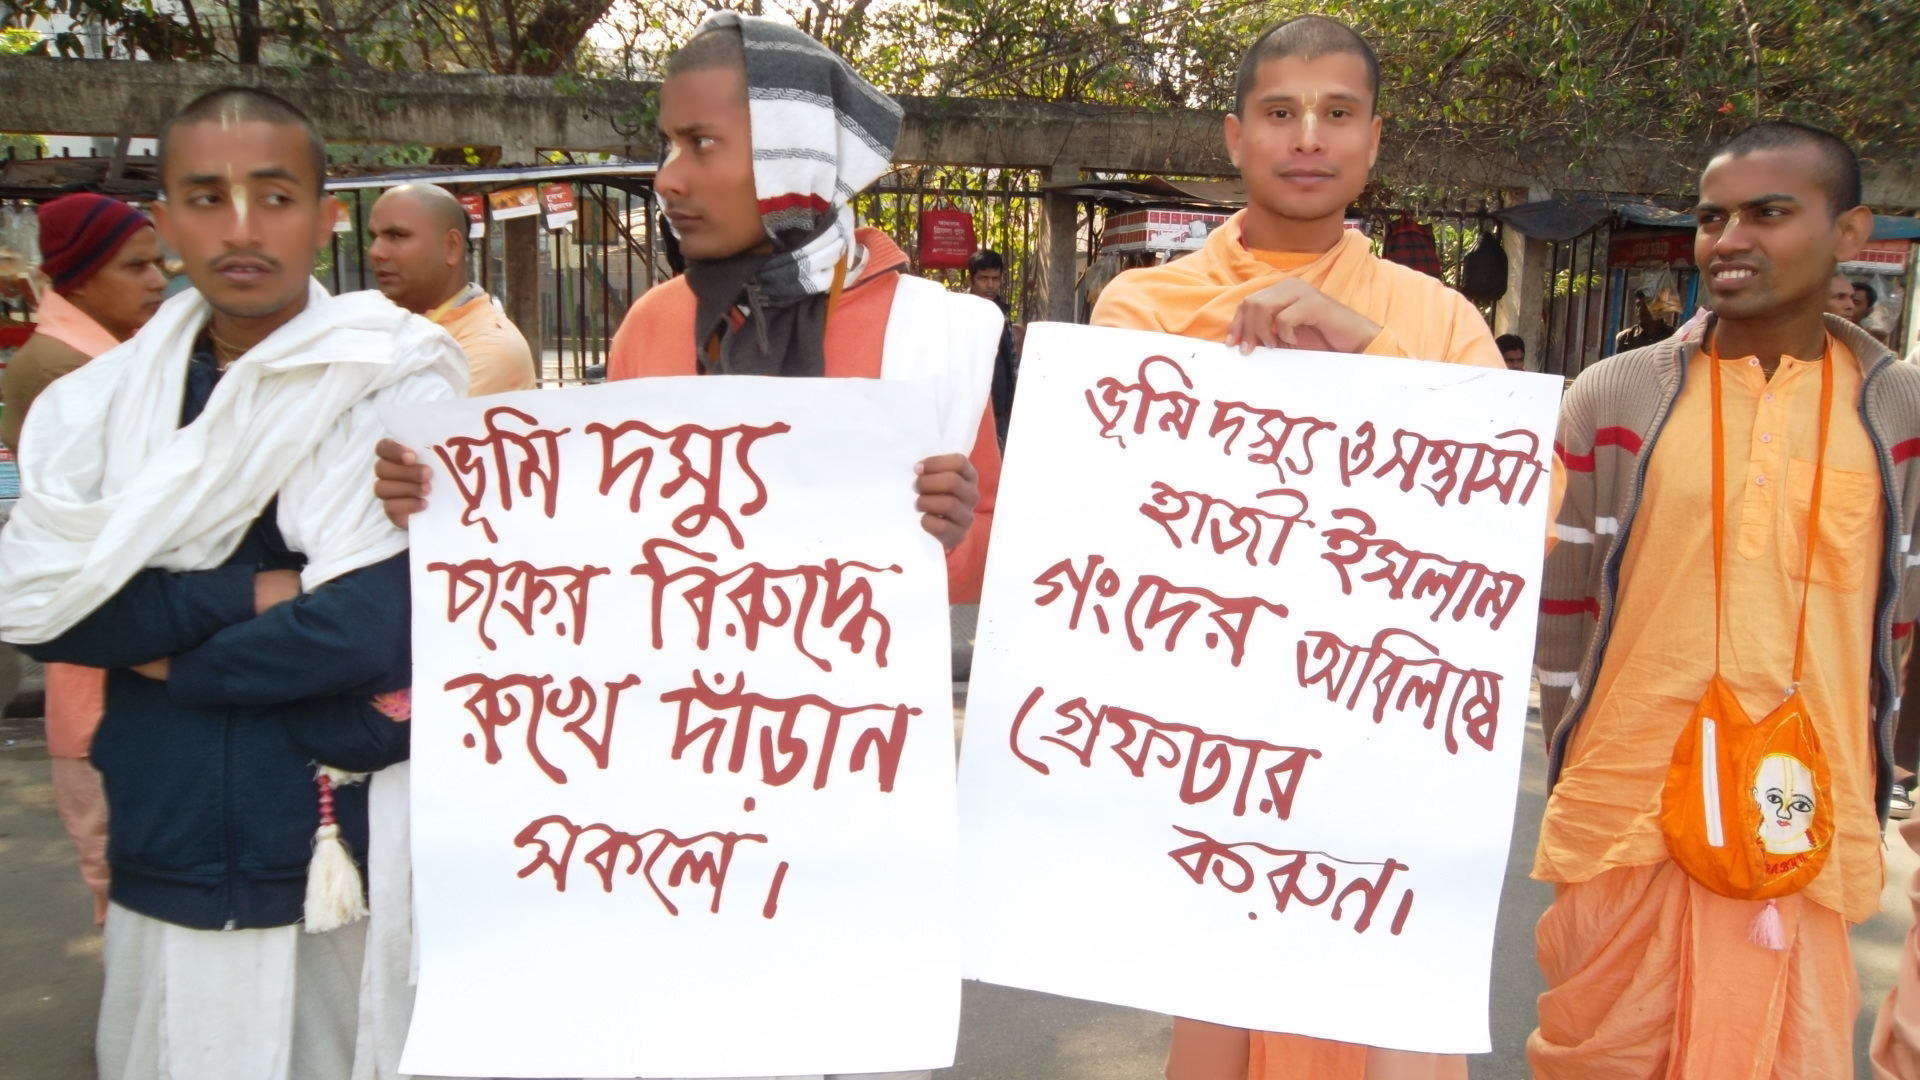 ভূমি দস্যু
চক্রের বিরুদ্ধে
রুখে দাঁড়ান
সকলে।
ভূমি দস্যু ও সন্ত্রাসী
হাজী ইসলাম
গংদের অবিলম্বে
গ্রেফতার
করুন।